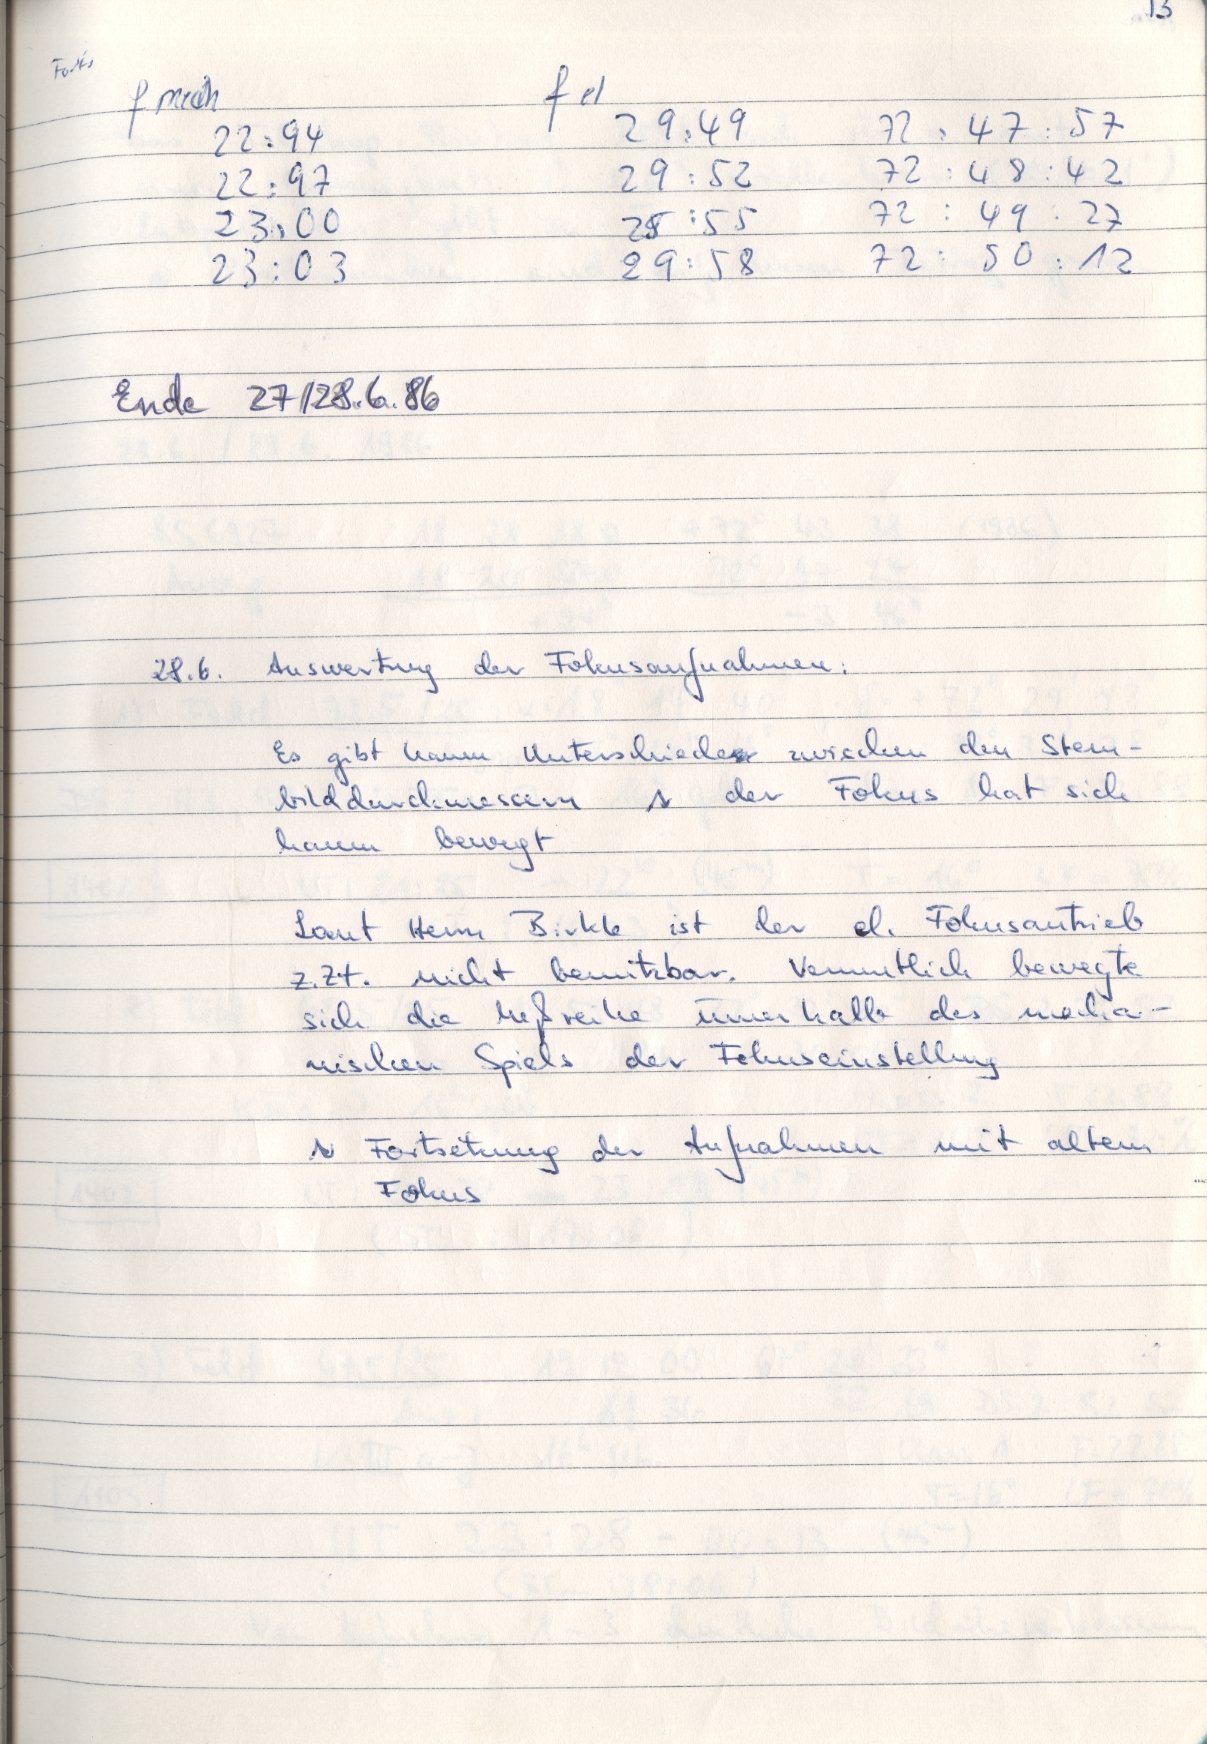 13
Forts
f mech f el
22:94 29:49 72:47:57
22:97 29:52 72:48:42
23:00 29:55 72:49:27
23:03 29:58 72:50:12
Ende 27/28.6.86
28.6. Auswertung der Fokusaufnahmen:
Es gibt kaum Unterschiede zwischen den Stern-
bilddurchmessern der Fokus hat sich
kaum bewegt
Laut Herrn Birkle ist der el. Fokusantrieb
z.Zt. nicht benutzbar. Vermutlich bewegte
sich die Meßreihe innerhalb des mecha-
nischen Spiels der Fokuseinstellung
Fortsetzung der Aufnahmen mit altem
Fokus